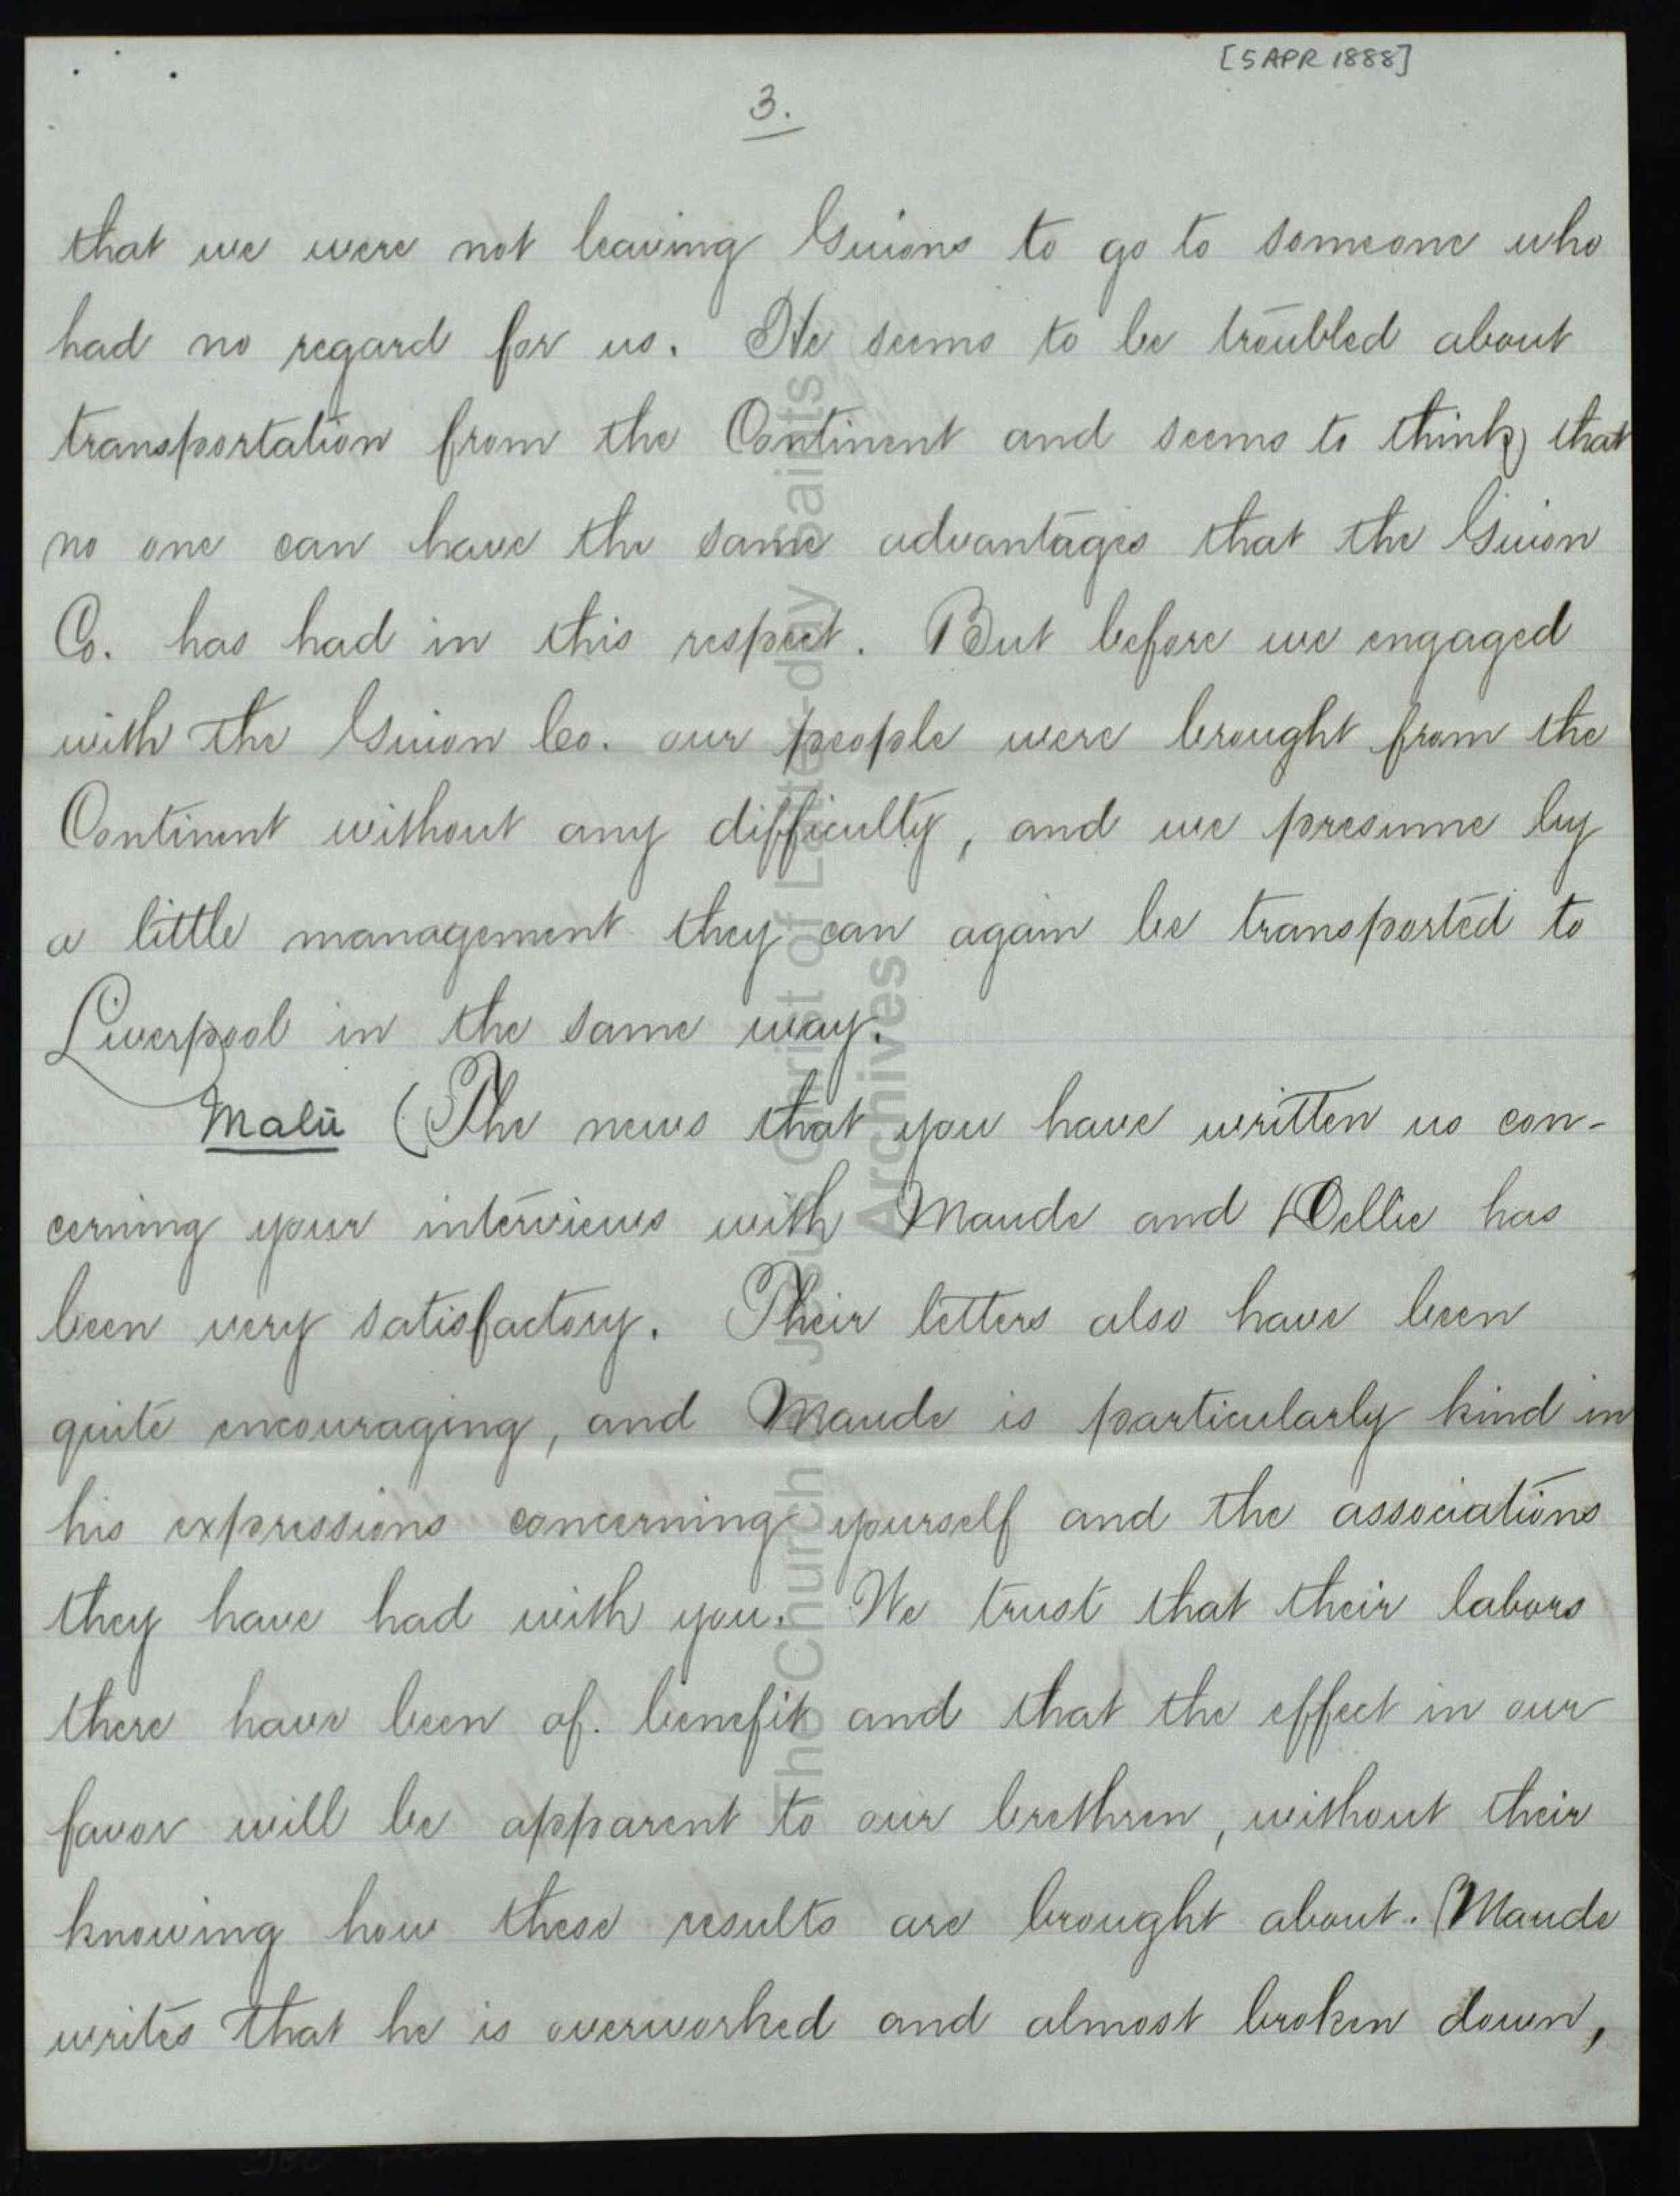 [5 APR 1888]
3.
that we were not leaving Guions to go to someone who
had no regard for us. He seems to be troubled about
transportation from the Continent and seems to think that
no one can have the same advantages that the Guion
Co. has had in this respect. But before we engaged
with the Guion Co. our people were brought from the
Continent without any difficulty, and we presume by
a little management they can again be transported to
Liverpool in the same way.
(The news that you have written us con-
cerning your interviews with Maude and Dellie has
been very satisfactory. Their letters also have been
quite encouraging, and Maude is particularly kind in
his expressions concerning yourself and the associations
they have had with you. We trust that their labors
there have been of. benefit and that the effect in our
favor will be apparent to our brethren, without their
knowing how these results are brought about. Maude
writes that he is overworked and almost broken down,
The Church of Jesus Christ of Latter-day Saints
Archives